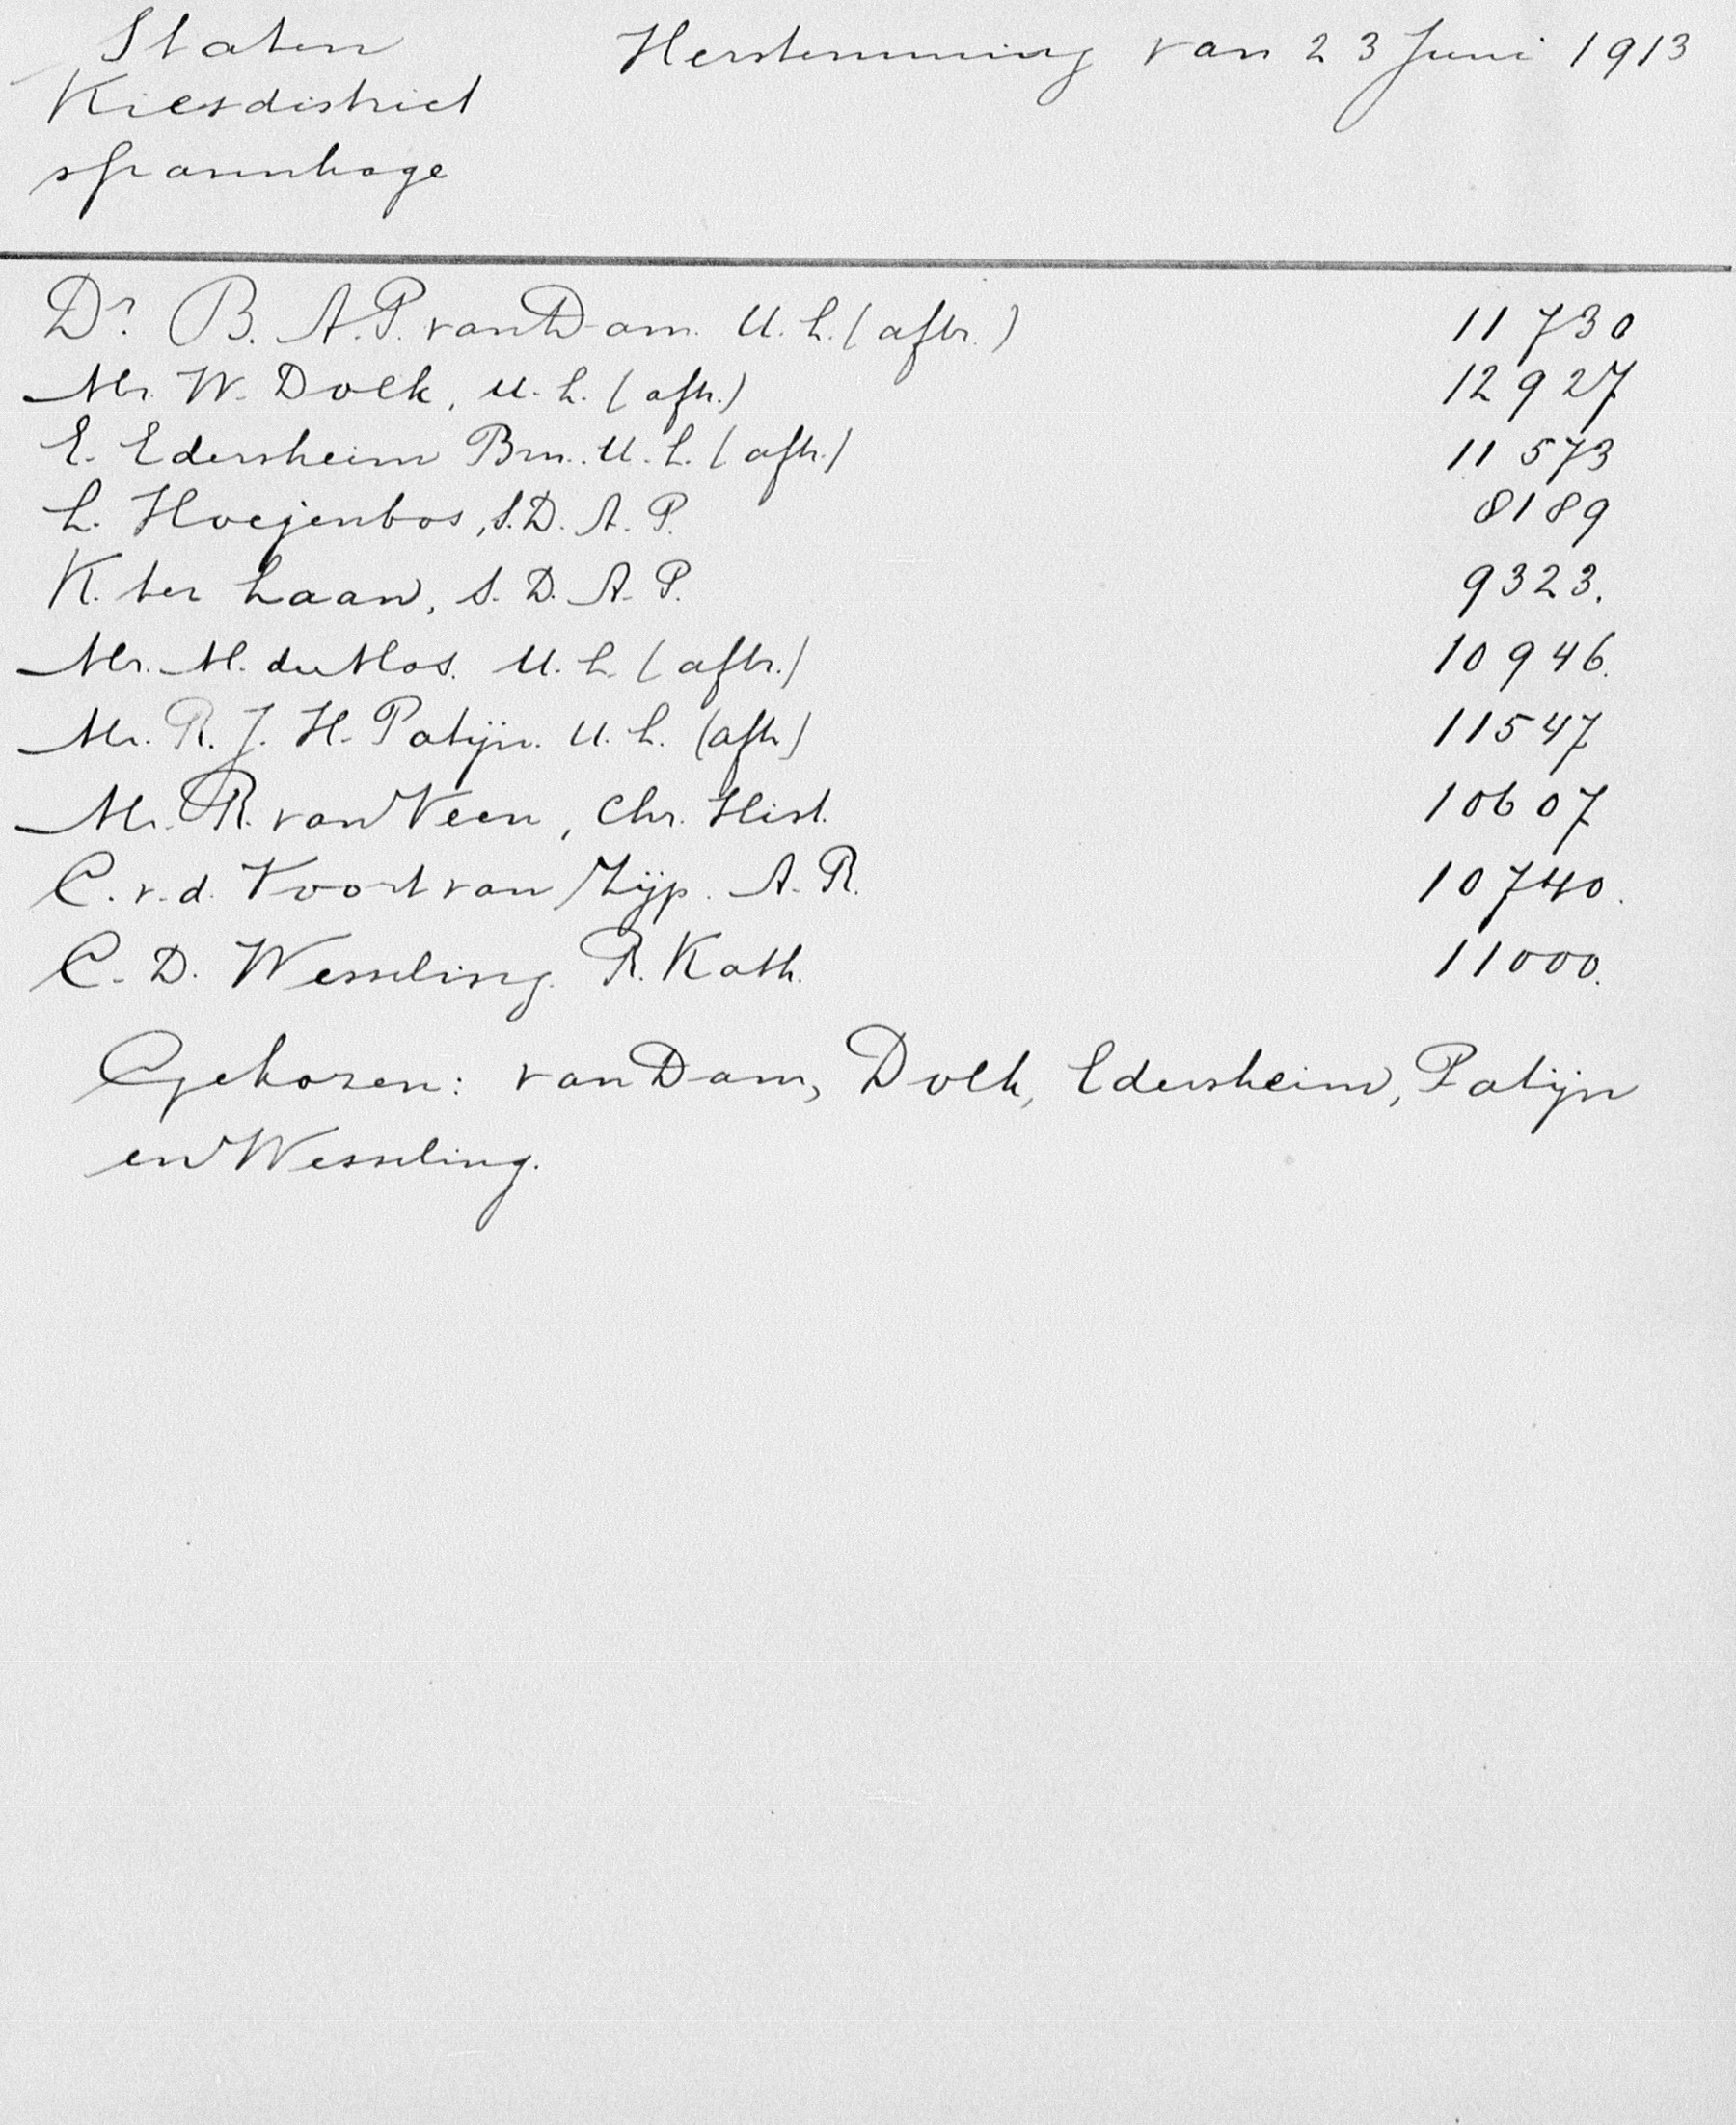 Staten
Herstemming van 23 Juni 1913
Kiesdistrict
sGravenhage
Dr. B. A. P. van Dam. U. L. (aftr.) 11730
Mr. W. Dolk, U. L. (aftr.) 12927
E. Edersheim Bzn. U. L. (aftr.) 11573
L. Hoejenbos, S. D. A. P. 8189
K. ter Laan, S. D. A. P. 9323.
Mr. M. du Mos. U. L. (aftr.) 10946.
Mr. R. J. H. Patijn. U. L. (aftr) 11547
Mr. R. van Veen, Chr. Hist. 10607
C. v. d. Voort van Zijp. A. R. 10740.
C. D. Wesseling. R. Kath. 11000.
Gekozen: van Dam, Dolk, Edersheim, Patijn
en Wesseling.